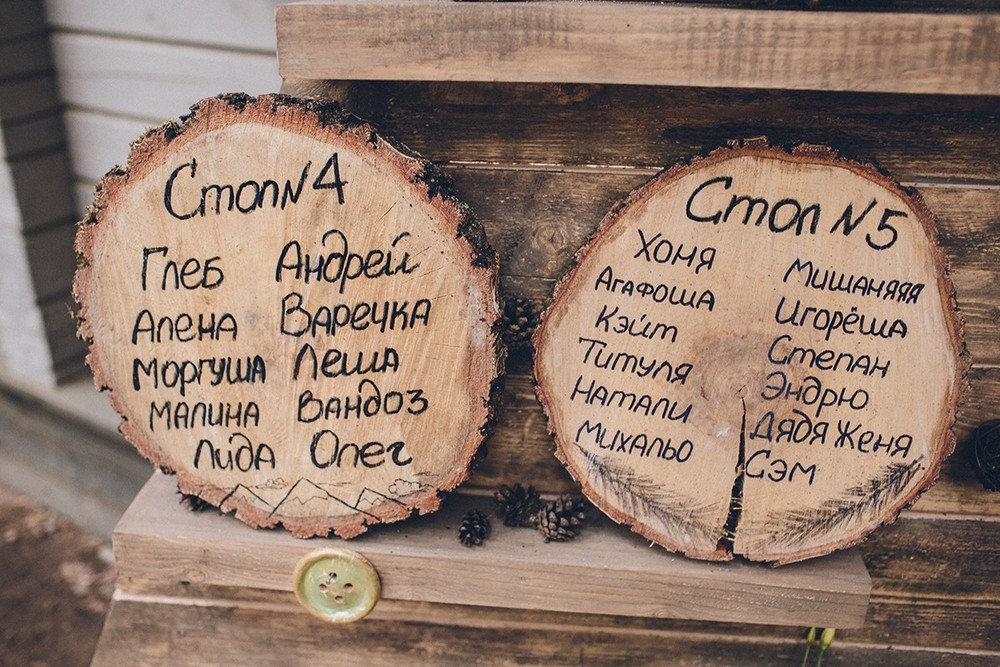 Стол N4
Глеб
Алена
Моргуша
Малина
Лида
Андрей
Варечка
Леша
Вандоз
Олег
Стол N5
Хоня
Агафоша
Кэйт
Титуля
Натали
Михальо
Мишаняяя
Игорёша
Степан
Эндрю
Дядя Женя
Сэм